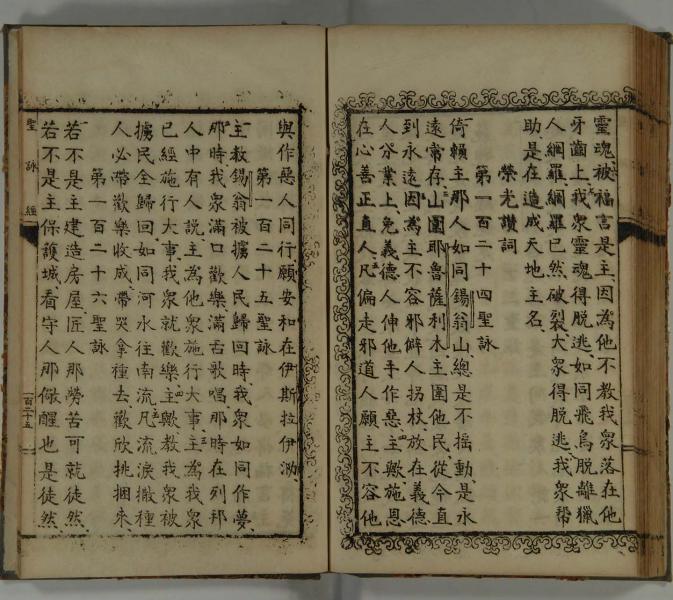 靈魂被福言是主因為他不教我衆落在他
牙齒上我衆靈魂得脫逃如同飛鳥脫離獵
人網羅網羅已然破裂大衆得脫逃我衆帮
助是在造成天地主名
榮光讚詞
第一百二十四聖詠
倚賴主那人如同錫翁山總是不摇動是永
遠常存山圍耶魯薩利木主圍他民從今直
到永遠因為主不容邪僻人拐杖放在義德
人分業上免義德人伸他手作惡主歟施恩
在心善正直人凡偏走邪道人願主不容他
與作惡人同行願安和在伊斯拉伊泐
第一百二十五聖詠
主救錫翁被擄人民歸回時我衆如同作夢
那時我衆滿口歡樂滿舌歌唱那時在列邦
人中有人說主為他衆施行大事主為我衆
已經施行大事我衆就歡樂主歟救我衆被
擄民全歸回如同河水往南流凡流淚撒種
人必帶歡樂收成帶哭拿種去歡欣挑捆來
第一百二十六聖詠
若不是主建造房屋匠人那勞苦可就徒然
若不是主保護城看守人那儆醒也是徒然
聖詠經
一百二十五